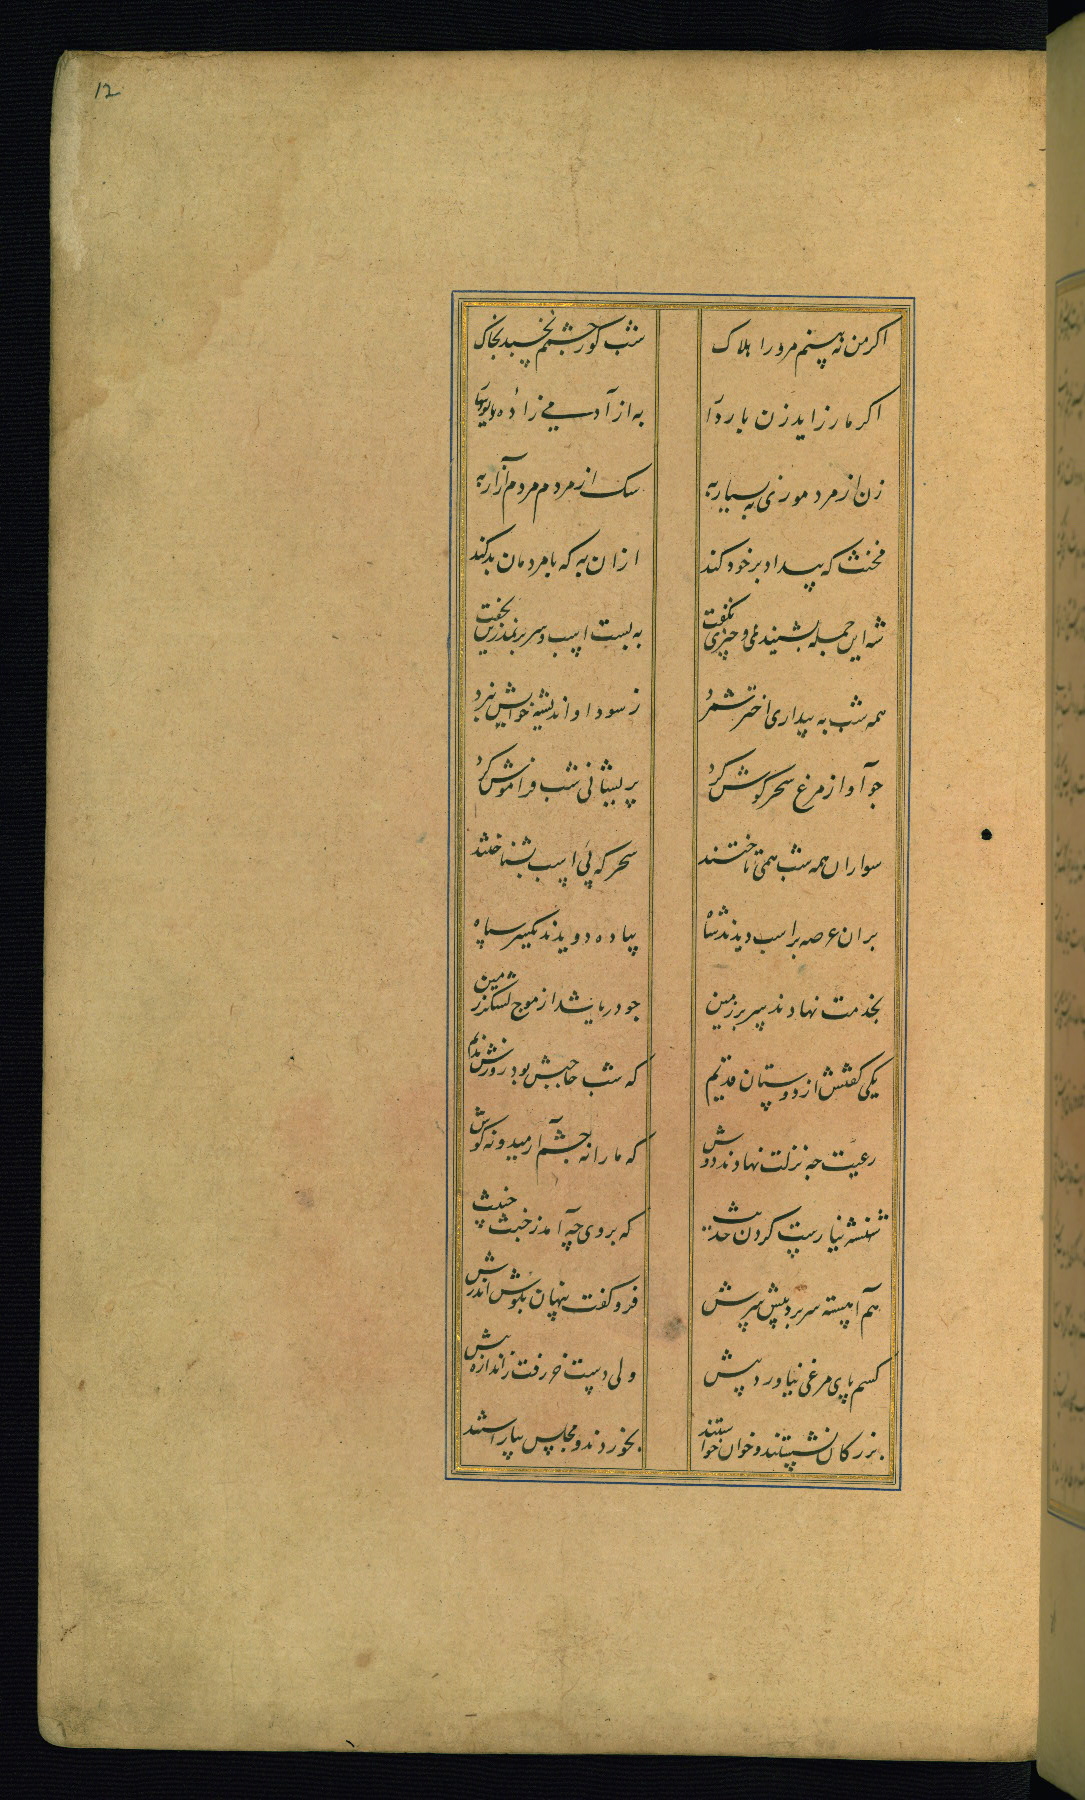 12
اگر من نه بینم مرو را هلاک شب کور چشمم نخسبد بخاک
اگر مار زاید زن باردار به از آدمی زادهٔ دیوسار
زن از مرد موذی به بسیار به سک از مردم مردم آزار به
مخنث که بیداد بر خود کند ازان به که با مردمان بد کند
شه این جمله بشنید و چیزی نگفت به بست اسپ و سر بر نمدزین بخفت
همه شب به بیداری اختر شمرد ز سودا و اندیشه خوابش نبرد
جو آواز مرغ سحر کوش کرد پریشانی شب فراموش کرد
سواران همه شب همی تاختند سحرکه پی اسپ بشناختند
بران عرصه بر اسب دیدند شاه پیاده دویدند یکسر سپاه
بخدمت نهادند سر بر زمین جو دریا شد از موج لشکر زمین
یکی کفتش از دوستان قدیم که شب حاجبش بود روزش ندیم
رعیت چه نزلت نهادند دوش که ما را نه چشم آرمید و نه کوش
شهنشه نیارست کردن حدیث که بر وی چه آمد ز خبث خبیث
هم آهسته سر برد پیش سرش فرو کفت پنهان بکوش اندرش
کسم پای مرغی نیاورد پیش ولی دست خر رفت ز اندازه بیش
بزرکان نشستند و خوان خواستند بخوردند و مجلس بیاراستند